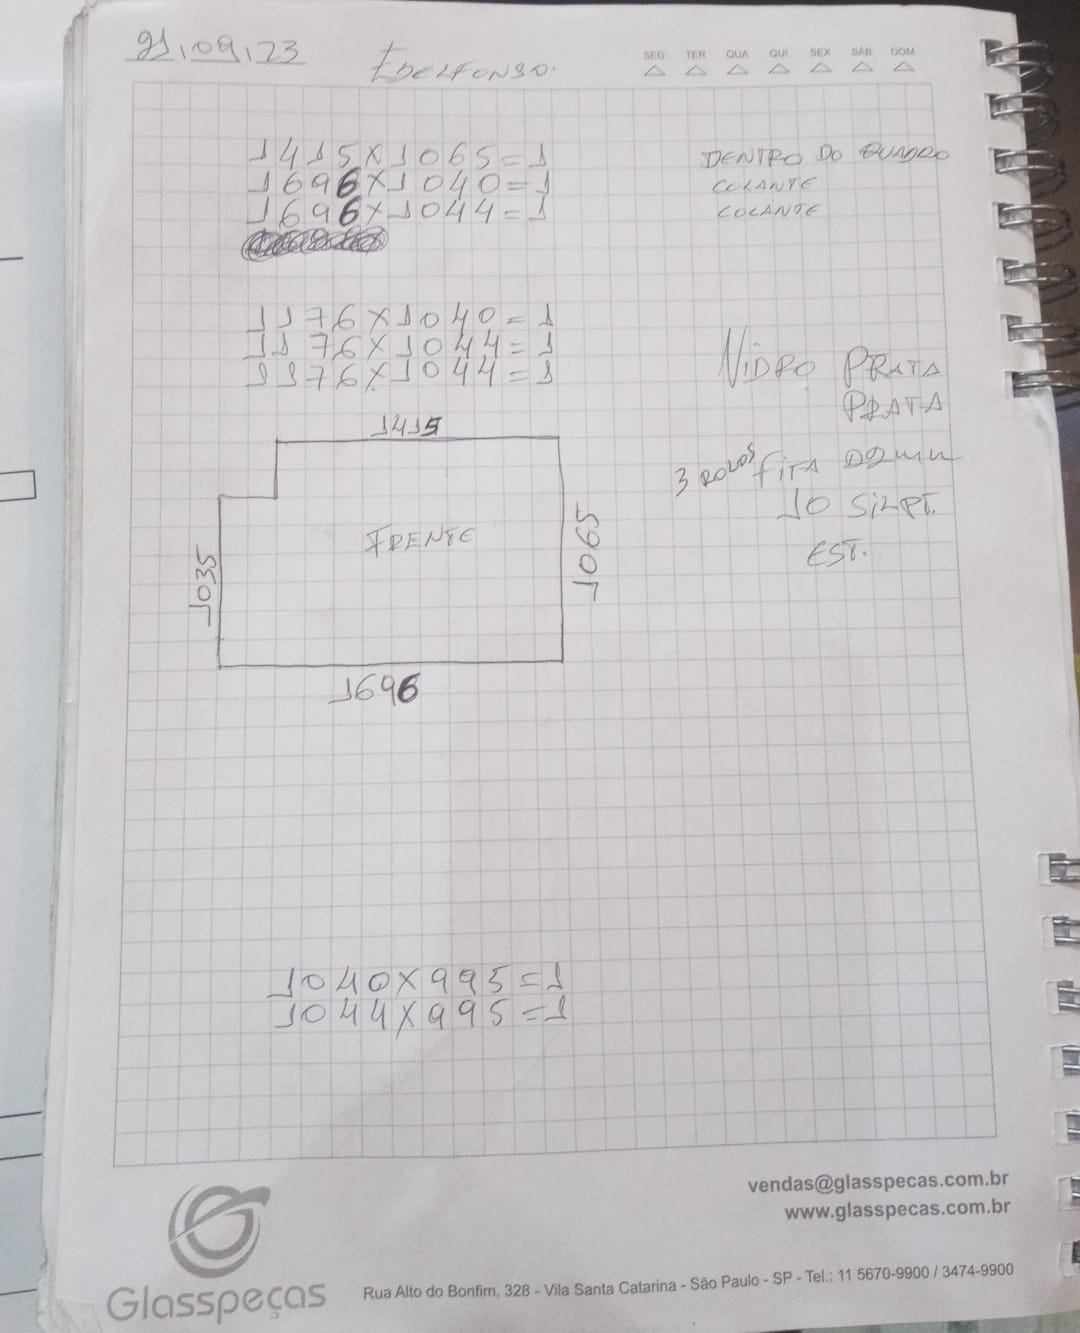 21,09,23
EDELFONSO.
SEG TER QUA QUI SEX SÁB DOM
1415X1065=1 DENTRO DO QUADRO
1696X1040=1 COLANTE
1696X1044=1 COLANTE
1176X1040=1
1176X1044=1
1176X1044=1
VIDRO PRATA
PRATA
1415
3 ROLOS FITA D2mm
10 SILPT.
EST.
FRENTE
1035
1065
1696
1040X995=1
1044X995=1
vendas@glasspecas.com.br
www.glasspecas.com.br
Glasspeças
Rua Alto do Bonfim, 328 - Vila Santa Catarina - São Paulo - SP - Tel.: 11 5670-9900 / 3474-9900